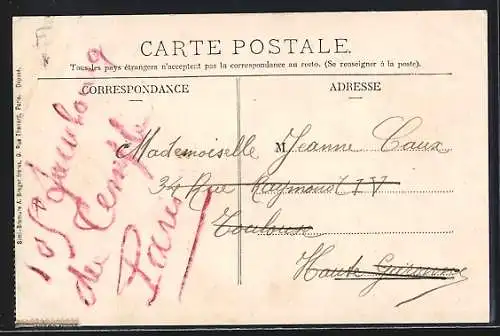 CARTE POSTALE.
Tous les pays étrangers n'acceptent pas la correspondance au recto. (Se renseigner à la poste).
CORRESPONDANCE
ADRESSE
Mademoiselle M Jeanne Caux
34 Rue Raymond IV
Toulouse
Haute Garonne
105 Faubourg
du Temple
Paris
Simili-Bromure A. Breger frères, 9, Rue Thénard, Paris. Déposé.